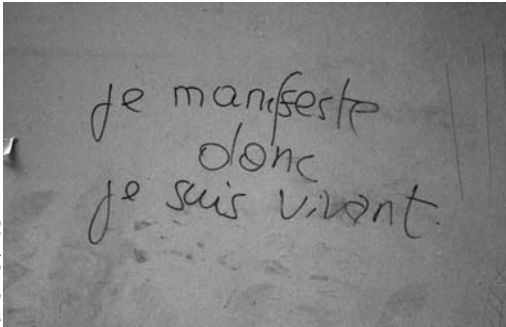 je manifeste
donc
je suis vivant.